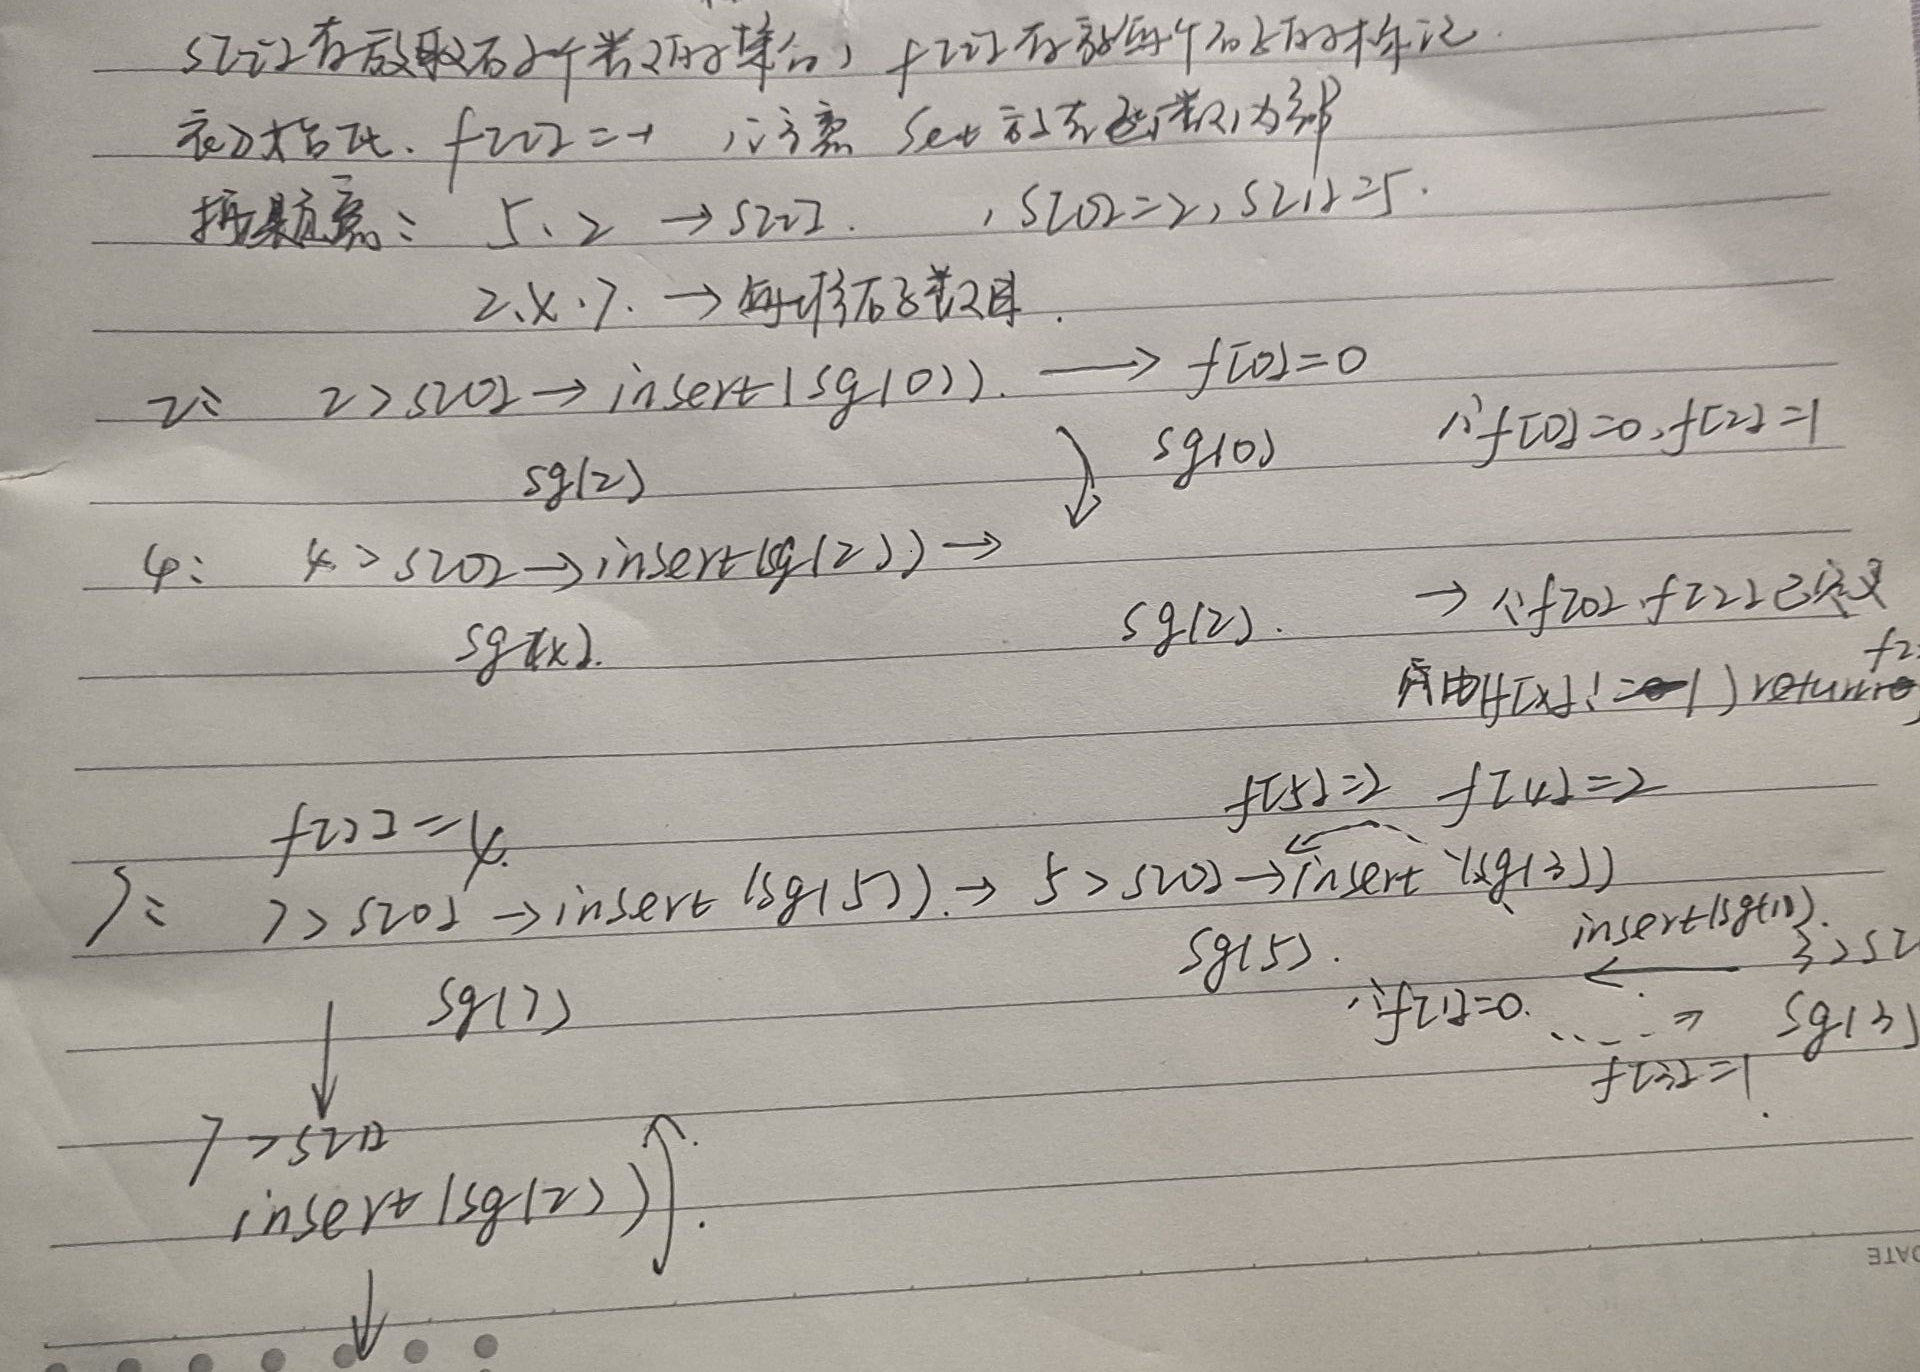 s[i]存放取石子个数的集合, f[i]存放每个石子的标记.
表初始化. f[i]=-1 注意 Set 放在 数内部
按题意: 5、2 → s[i]. , s[0]=2, s[1]=5.
2、4、7. → 每堆石子数目.
2: 2>s[0] → insert(sg(0)). → f[0]=0
sg(2) sg(0) ∴f[0]=0, f[2]=1
4: 4>s[0] → insert(sg(2)) →
sg(4). sg(2). → ∵f[0]、f[2]已定义
f[x]!=-1) return
f[5]=2 f[4]=2
f[7]=4.
7: 7>s[0] → insert(sg(5)). → 5>s[0] → insert(sg(3))
sg(7) sg(5). insert(sg(1)). 3>s[
∴f[1]=0. sg(3)
f[3]=1.
7>s[1]
insert(sg(2))
DATE